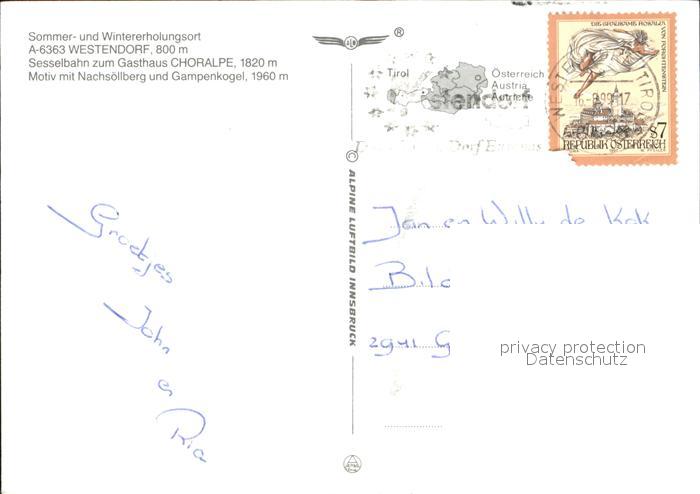 Sommer- und Wintererholungsort
A-6363 WESTENDORF, 800 m
Sesselbahn zum Gasthaus CHORALPE, 1820 m
Motiv mit Nachsöllberg und Gampenkogel, 1960 m
®
Tirol
Österreich
Austria
Autriche
Westendorf
DIE GRAUSAME ROSALIA VON FORCHTENSTEIN
TIROL
s7
REPUBLIK ÖSTERREICH
© ALPINE LUFTBILD INNSBRUCK
Groetjes
John
en
Ria
Jan en Willy de Kok
2941 G
privacy protection
Datenschutz